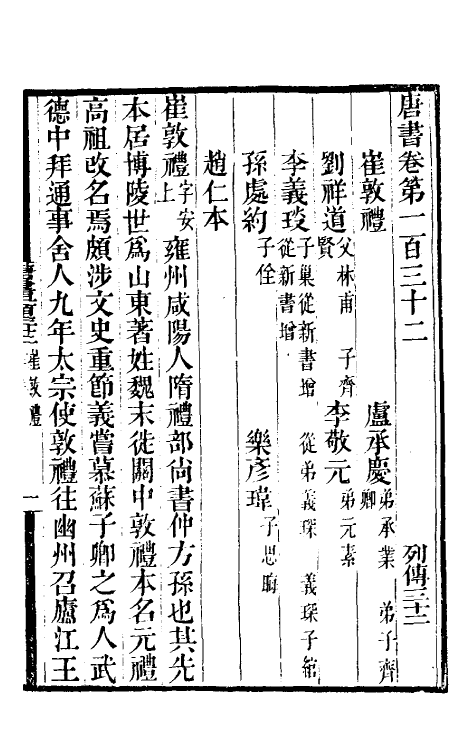 唐書卷第一百三十二　列傳三十二
崔敦禮　盧承慶弟承業　弟子齊卿
劉祥道父林甫　子齊賢　李敬元弟元素
李義琰子巢從新書增　從弟義琛　義琛子綰從新書增
孫處約子佺　樂彥瑋子思晦
趙仁本
崔敦禮字安上雍州咸陽人隋禮部尙書仲方孫也其先
本居博陵世爲山東著姓魏末徙關中敦禮本名元禮
高祖改名焉頗涉文史重節義嘗慕蘇子卿之爲人武
德中拜通事舍人九年太宗使敦禮往幽州召廬江王
崔敦禮　一